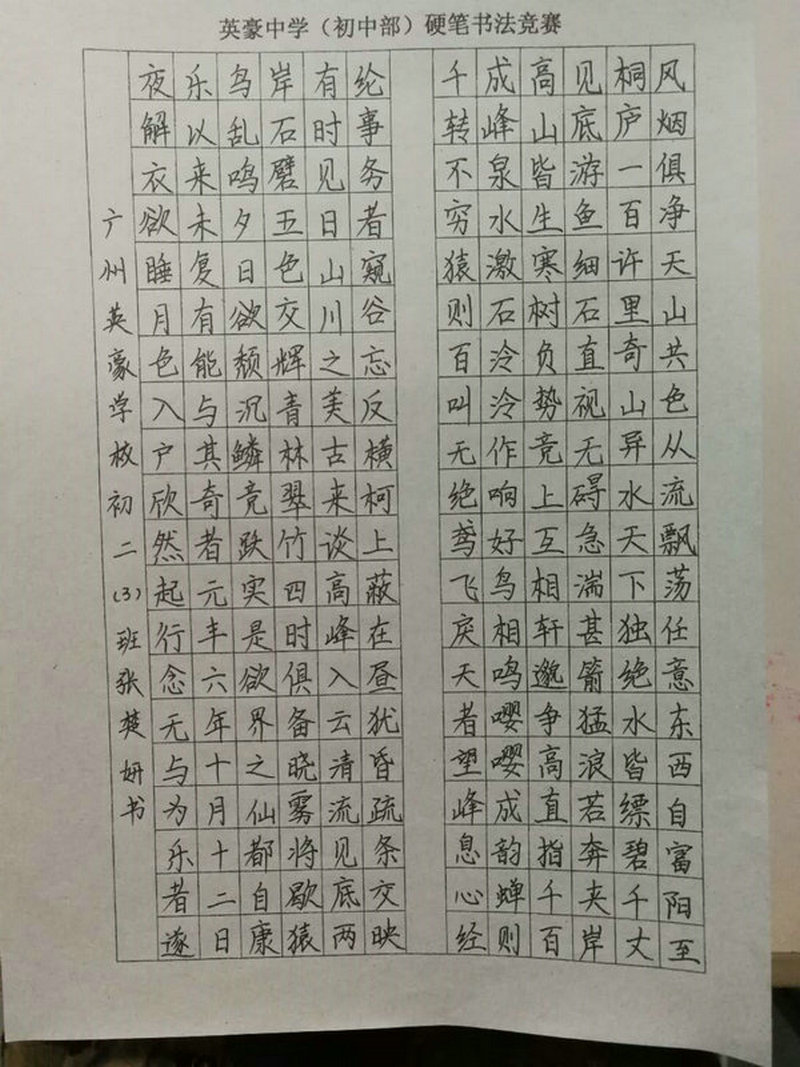 英豪中学（初中部）硬笔书法竞赛
风烟俱净天山共色从流飘荡任意东西自富阳至
桐庐一百许里奇山异水天下独绝水皆缥碧千丈
见底游鱼细石直视无碍急湍甚箭猛浪若奔夹岸
高山皆生寒树负势竞上互相轩邈争高直指千百
成峰泉水激石泠泠作响好鸟相鸣嘤嘤成韵蝉则
千转不穷猿则百叫无绝鸢飞戾天者望峰息心经
纶事务者窥谷忘反横柯上蔽在昼犹昏疏条交映
有时见日山川之美古来谈高峰入云清流见底两
岸石劈五色交辉青林翠竹四时俱备晓雾将歇猿
鸟乱鸣夕日欲颓沉鳞竞跃实是欲界之仙都自康
乐以来未复有能与其奇者元丰六年十月十二日
夜解衣欲睡月色入户欣然起行念无与为乐者遂
广州英豪学校初二(3)班张楚妍书